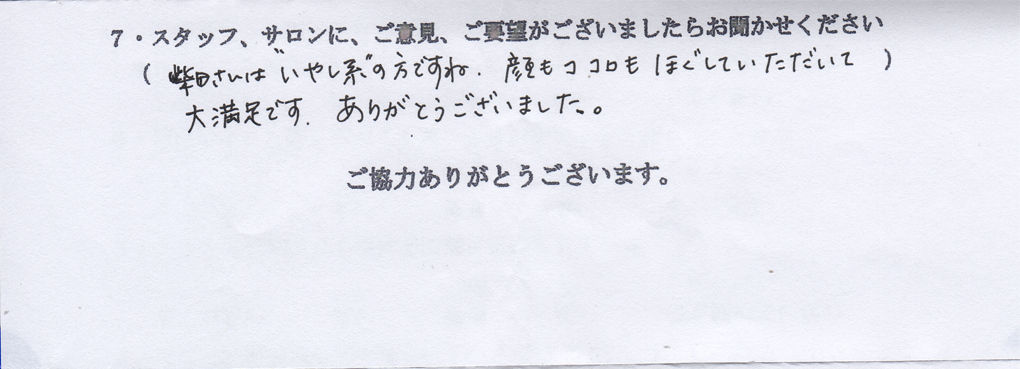 7・スタッフ、サロンに、ご意見、ご要望がございましたらお聞かせください
( 柴田さんは"いやし系"の方ですね. 顔もココロもほぐしていただいて )
大満足です. ありがとうございました。
ご協力ありがとうございます。